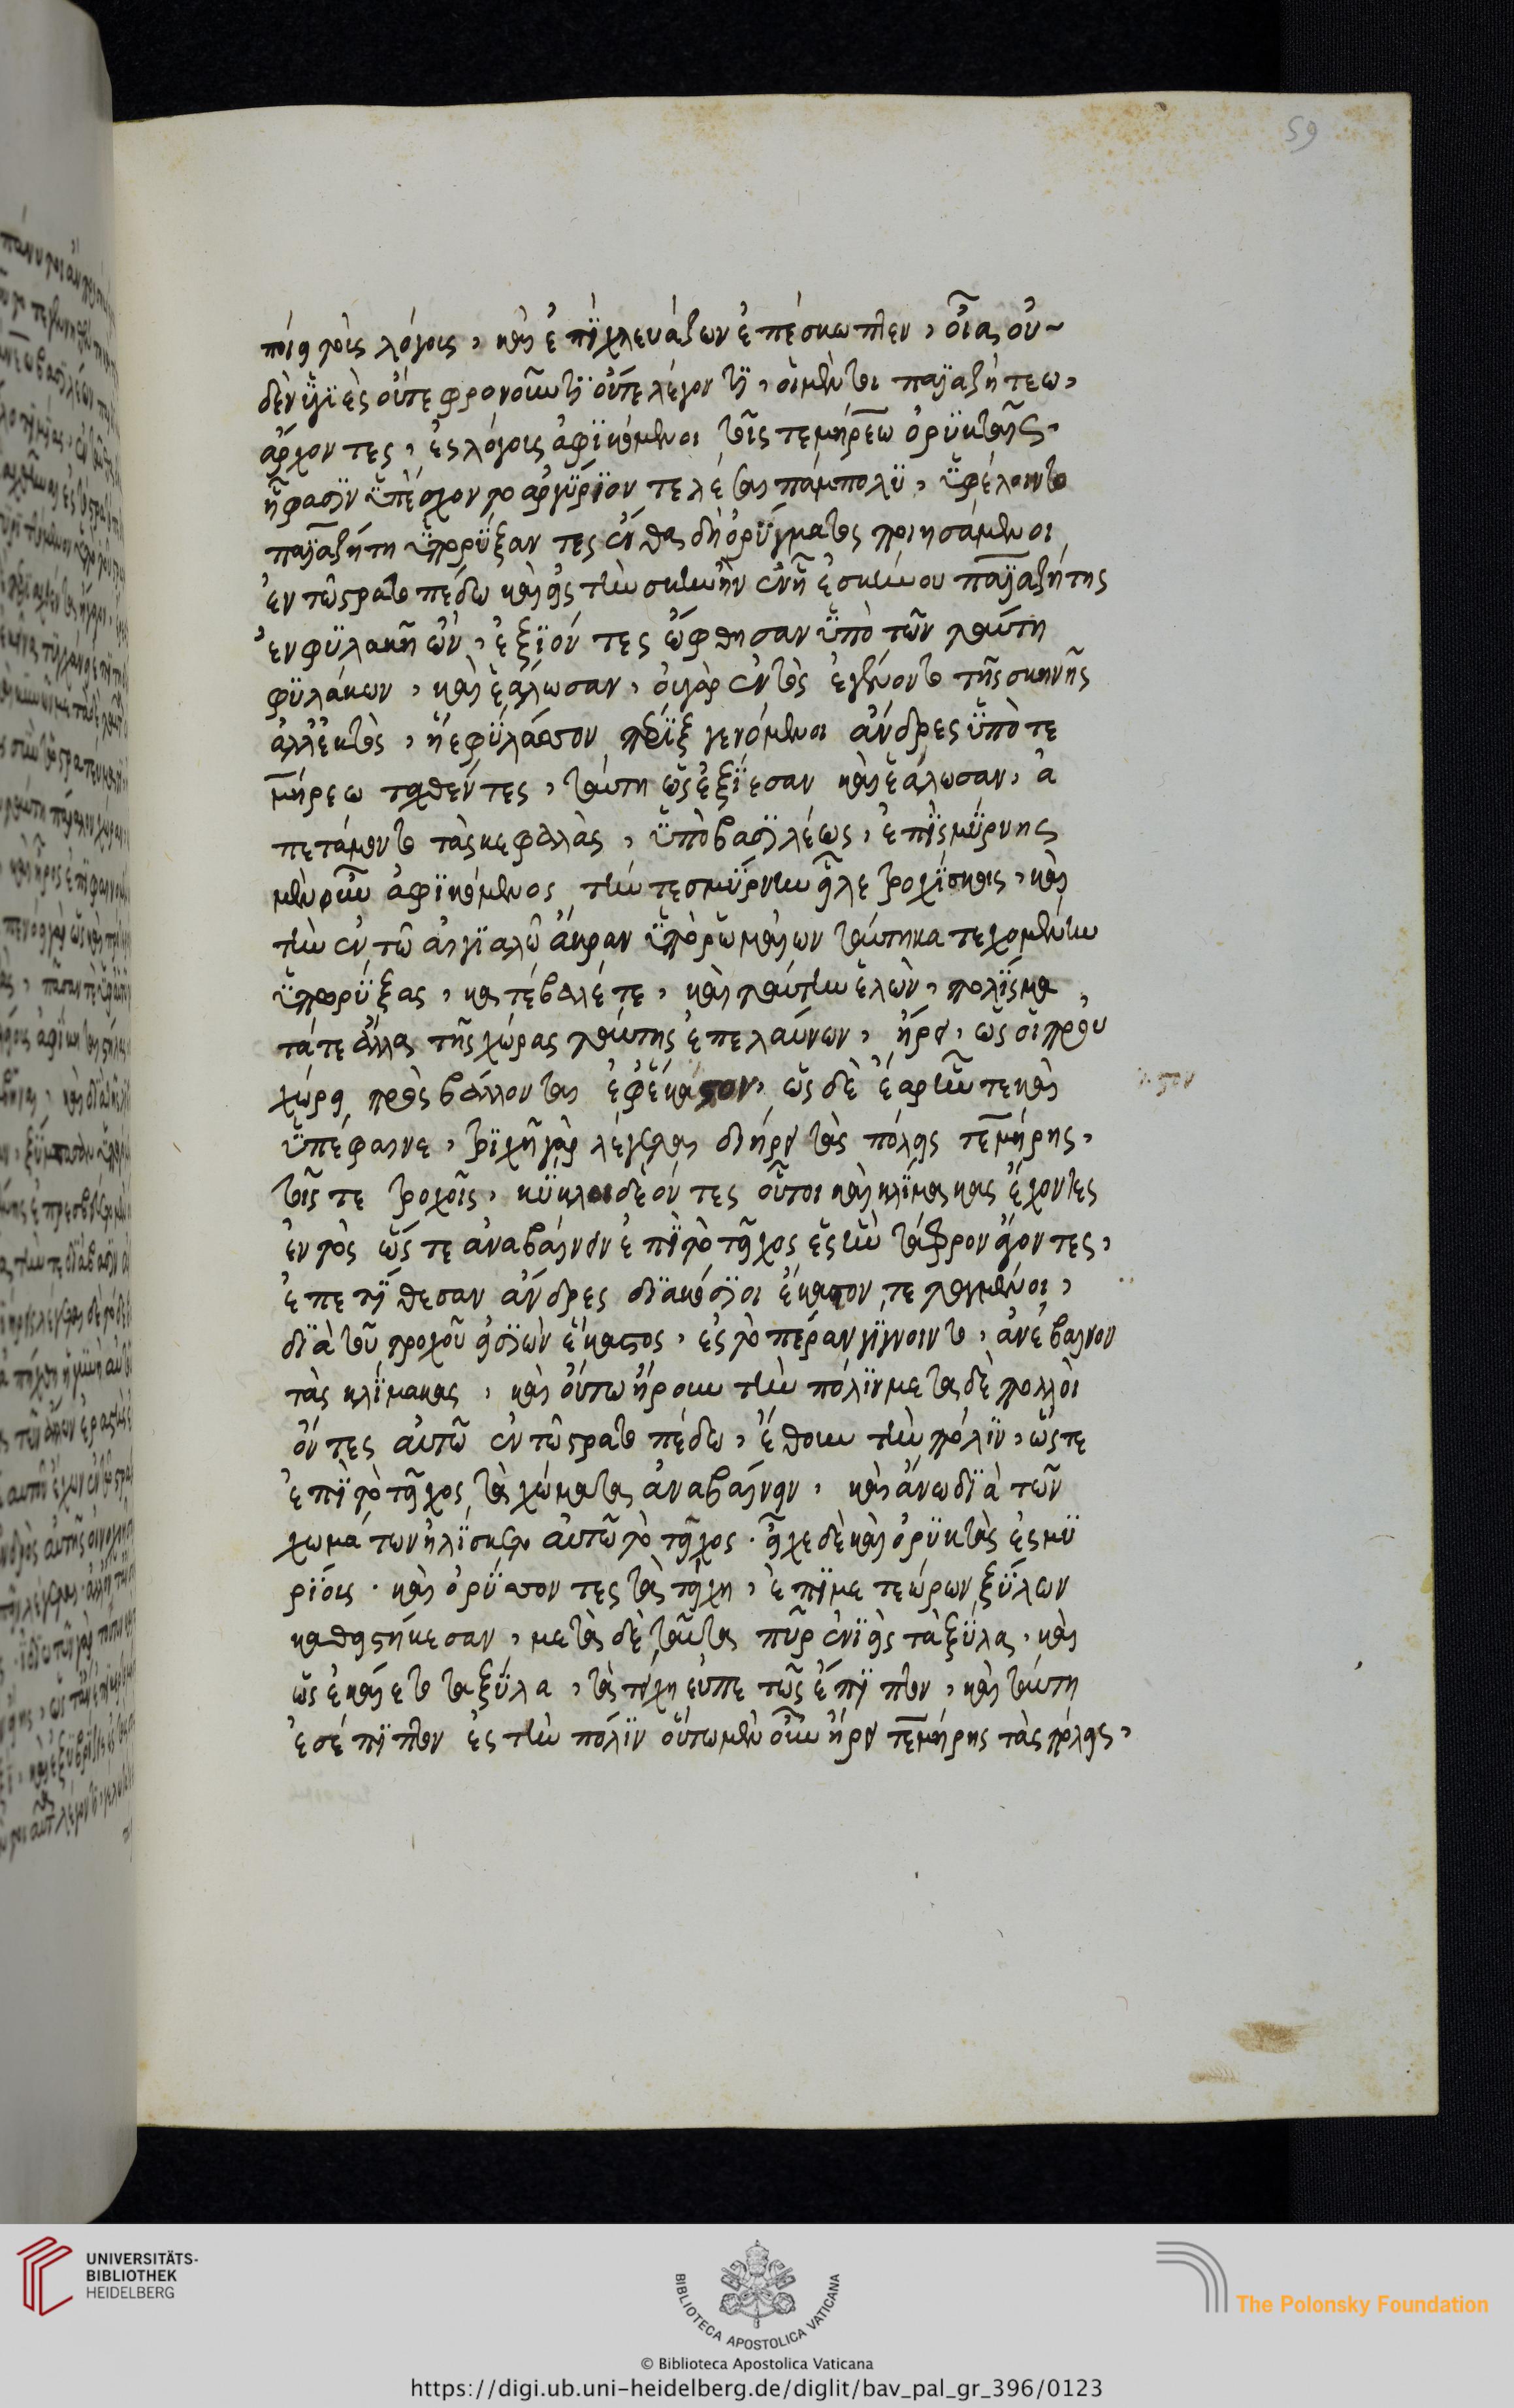 59
ποίᾳ τοῖς λόγοις, καὶ ἐπιχλευάζων ἐπέσκωπτεν, οἷα οὐ-
δὲν ὑγιὲς οὔτε φρονοῦντι οὔτε λέγοντι, οἱ μέντοι παϊαζήτεω,
ἄρχοντες, ἐς λόγους ἀφικόμενοι τοῖς τεμήρεω ὀρυκταῖς,
ᾗ φασὶν ὑπέσχοντο ἀργύριον τελέσαι πάμπολυ, ὑφέλοιντο
παϊαζήτη ὑπορύξαντες ἔνθα δὴ ὀρύγματος ποιησάμενοι
ἐν τῷ στρατοπέδῳ καὶ ἐς τὴν σκηνὴν ἐν ᾗ ἐσκήνου παϊαζήτης
ἐν φυλακῇ ὢν, ἐξιόντες ὤφθησαν ὑπὸ τῶν ταύτῃ
φυλάκων, καὶ ἑάλωσαν, οὐ γὰρ ἐντὸς ἐγένοντο τῆς σκηνῆς
ἀλλ' ἐκτὸς, ᾗ ἐφύλασσον πέριξ γενόμενοι ἄνδρες ὑπὸ τε
μήρεω ταχθέντες, ταύτῃ ὡς ἐξίεσαν καὶ ἑάλωσαν, ἀ
πετάμοντο τὰς κεφαλὰς, ὑπὸ βασιλέως, ἐπὶ σμύρνης
μὲν οὖν ἀφικόμενος, τήν τε σμύρνην εἷλε τροχίσκοις, καὶ
τὴν ἐν τῷ αἰγιαλῷ ἄκραν ὑπορωμαίων ταύτῃ κατεχομένην
ὑπορύξας, κατέβαλέ τε, καὶ ταύτην ἑλὼν, πολίσμα
τά τε ἄλλα τῆς χώρας ταύτης ἐπελαύνων, ᾕρει, ὡς οἱ πρου
χώρει προσβάλλοντι ἐφ' ἕκαστον, ὡς δὲ ἔαρ ἦν τε καὶ
ὑπέφαινε, τριχῇ γὰρ λέγεται διῄρει τὰς πόλεις τεμήρης,
τοῖς τε τροχοῖς, κύκλοι δὲ ὄντες οὗτοι καὶ κλίμακας ἔχοντες
ἐντὸς ὥστε ἀναβαίνειν ἐπὶ τὸ τεῖχος ἐς τὴν τάφρον ἄγοντες,
ἐπετίθεσαν ἄνδρες διακόσιοι ἕκαστον τεταγμένοι,
διὰ τοῦ τροχοῦ εἰσιὼν ἕκαστος, ἐς τὸ πέραν γίγνοιντο, ἀνέβαινον
τὰς κλίμακας, καὶ οὕτω ᾕρουν τὴν πόλιν μετὰ δὲ πολλοὶ
ὄντες αὐτῷ ἐν τῷ στρατοπέδῳ, ἔχουν τὴν πόλιν, ὥστε
ἐπὶ τὸ τεῖχος τὰ χώματα ἀναβαίνειν, καὶ ἄνω διὰ τῶν
χωμάτων ἡλίσκετο αὐτῷ τὸ τεῖχος. εἶχε δὲ καὶ ὀρυκτὰς ἐς μυ
ρίους. καὶ ὀρύσσοντες τὰ τείχη, ἐπὶ μετεώρων ξύλων
καθειστήκεσαν, μετὰ δὲ ταῦτα πῦρ ἐνιεὶς τὰ ξύλα, καὶ
ὡς ἐκαίετο τὰ ξύλα, τὰ τείχη εὐπετῶς ἔπιπτεν, καὶ ταύτῃ
ἐσέπιπτον ἐς τὴν πόλιν οὕτω μὲν οὖν ᾕρει τεμήρης τὰς πόλεις,
UNIVERSITÄTS-
BIBLIOTHEK
HEIDELBERG
BIBLIOTECA APOSTOLICA VATICANA
The Polonsky Foundation
© Biblioteca Apostolica Vaticana
https://digi.ub.uni-heidelberg.de/diglit/bav_pal_gr_396/0123